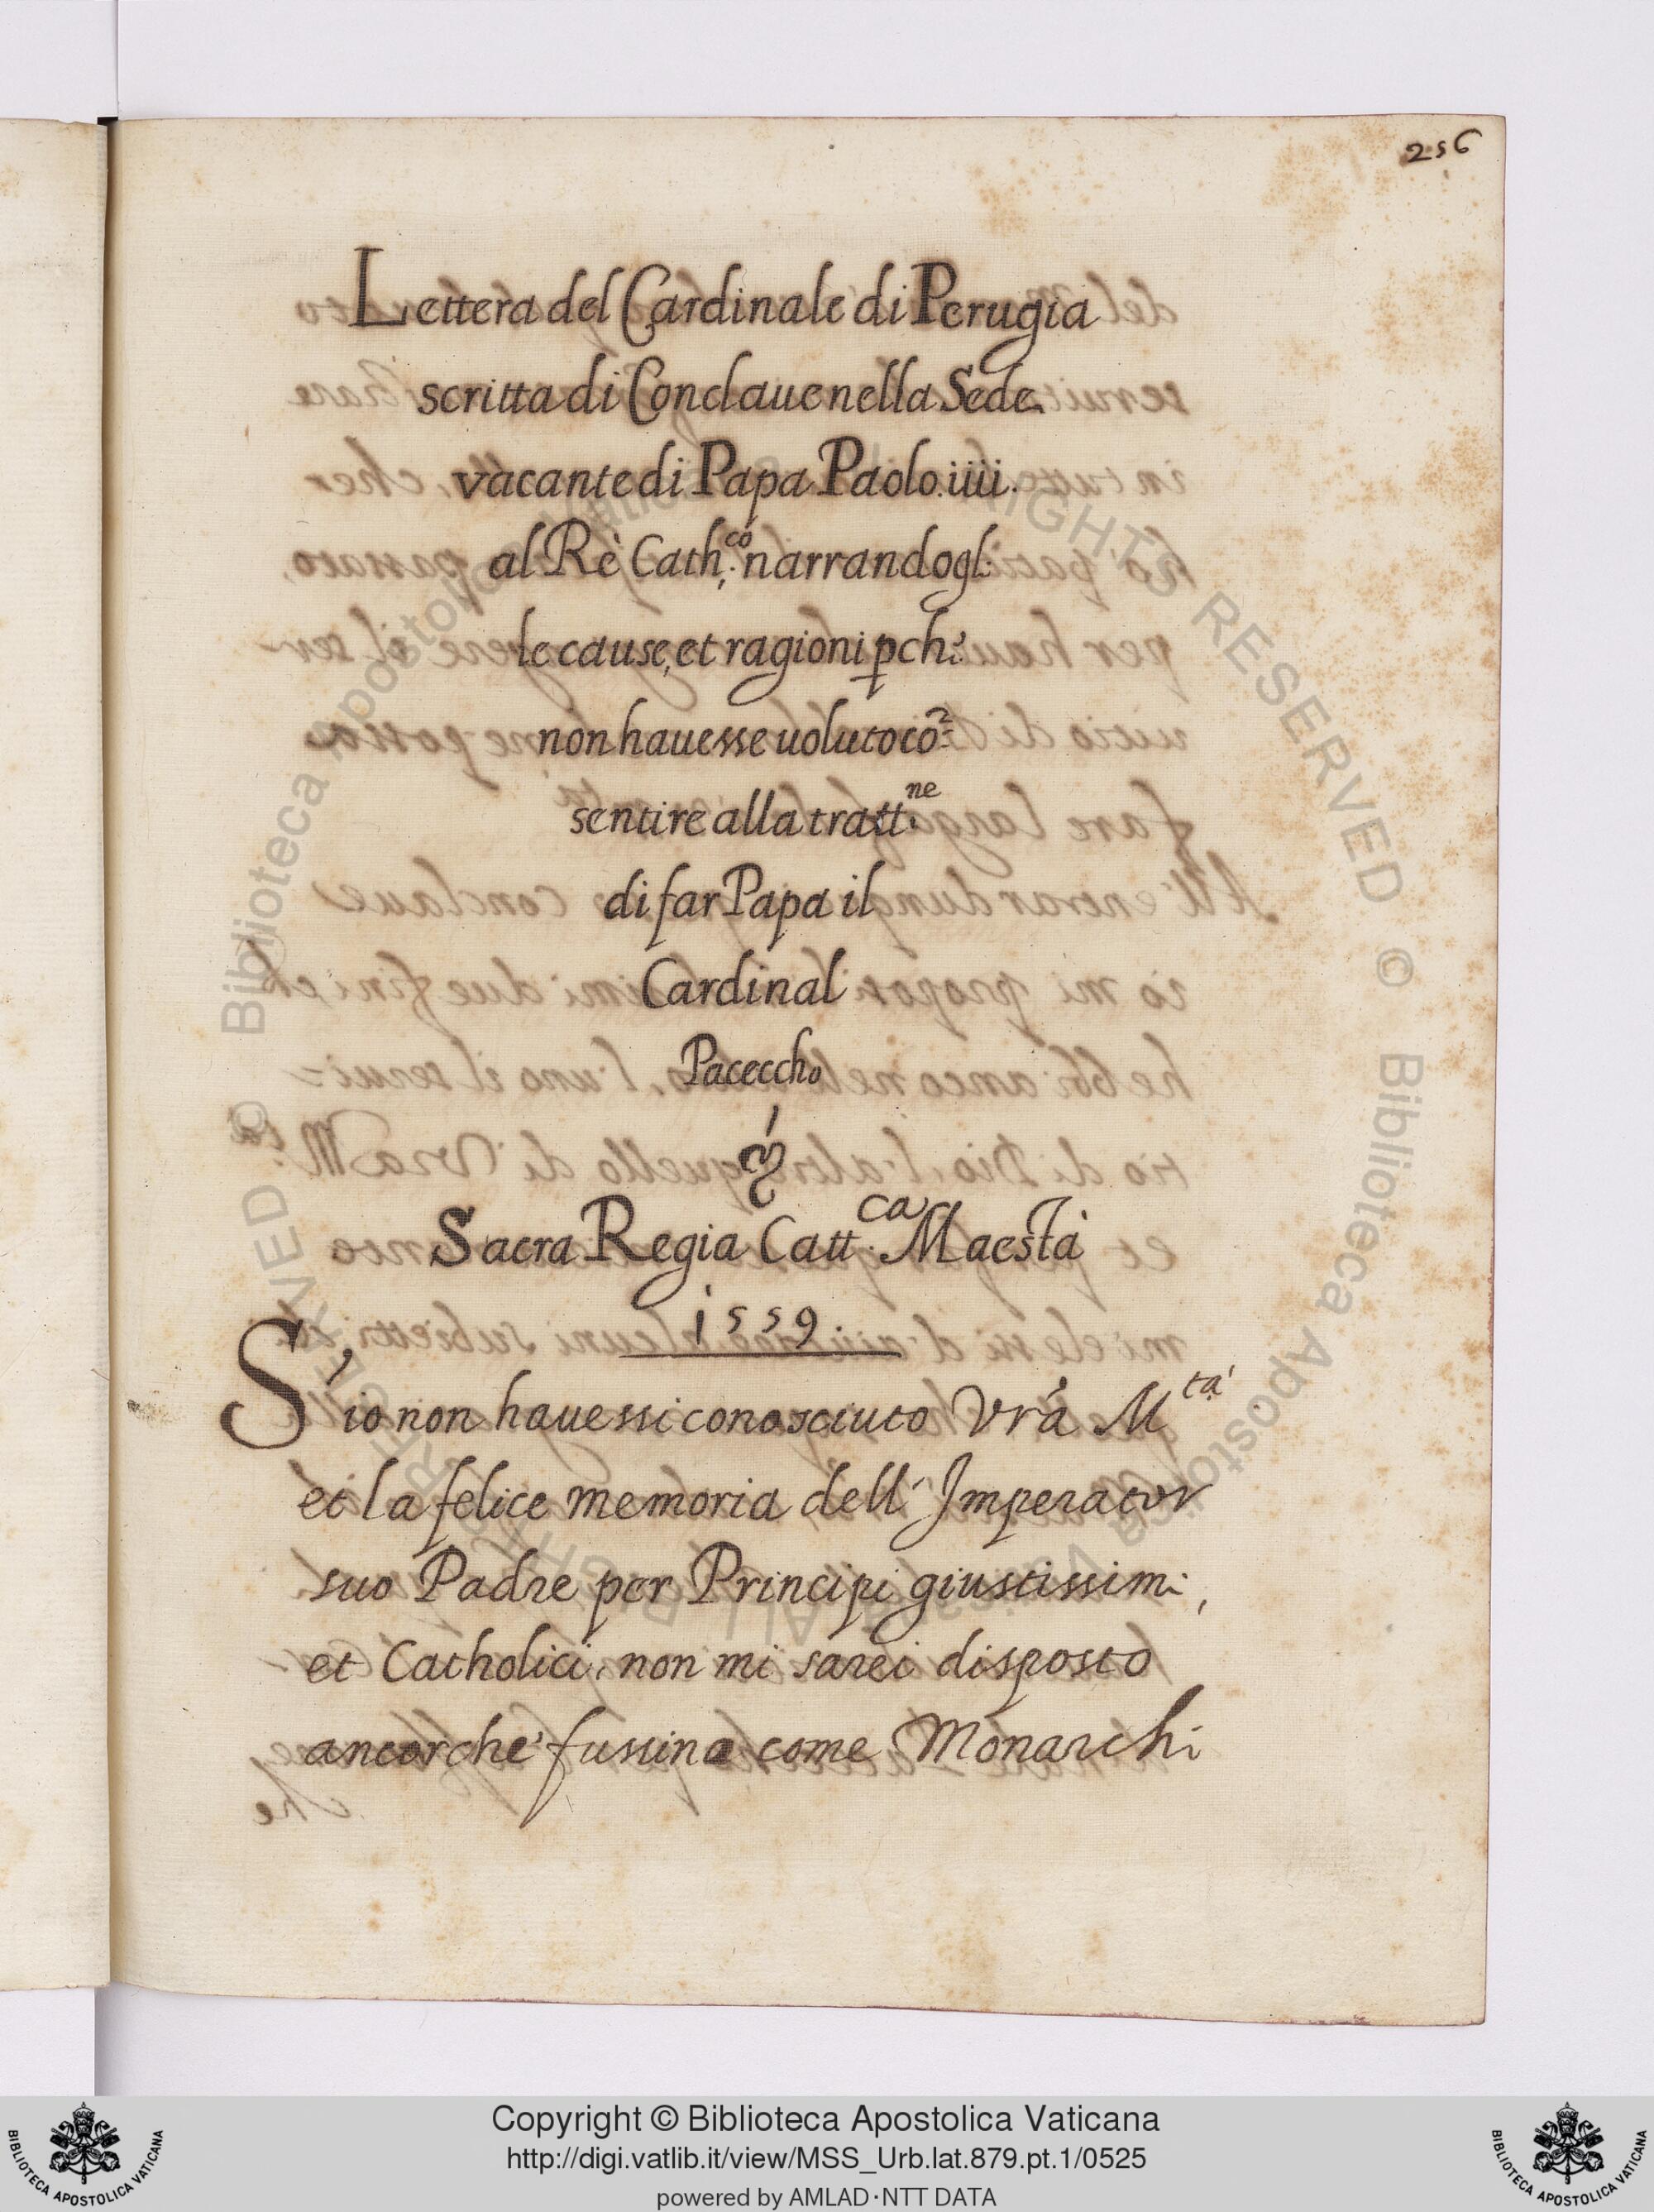 256
Lettera del Cardinale di Perugia
scritta di Conclaue nella Sede
vacante di Papa Paolo.iiii.
al Rè Cath.co narrandogli
le cause, et ragioni pche
non hauesse uoluto cõ=
sentire alla tratt.ne
di far Papa il
Cardinal
Pacecho
Sacra Regia Catt.ca Maestà
1559.
S'io non hauessi conosciuto Vra M.tà
et la felice memoria dell' Imperator
suo Padre per Principi giustissimi,
et Catholici, non mi sarei disposto
ancorche' fussino come Monarchi
Biblioteca Apostolica Vaticana ALL RIGHTS RESERVED ©
Biblioteca Apostolica Vaticana ALL RIGHTS RESERVED ©
Copyright © Biblioteca Apostolica Vaticana
http://digi.vatlib.it/view/MSS_Urb.lat.879.pt.1/0525
powered by AMLAD·NTT DATA
BIBLIOTECA APOSTOLICA VATICANA
BIBLIOTECA APOSTOLICA VATICANA